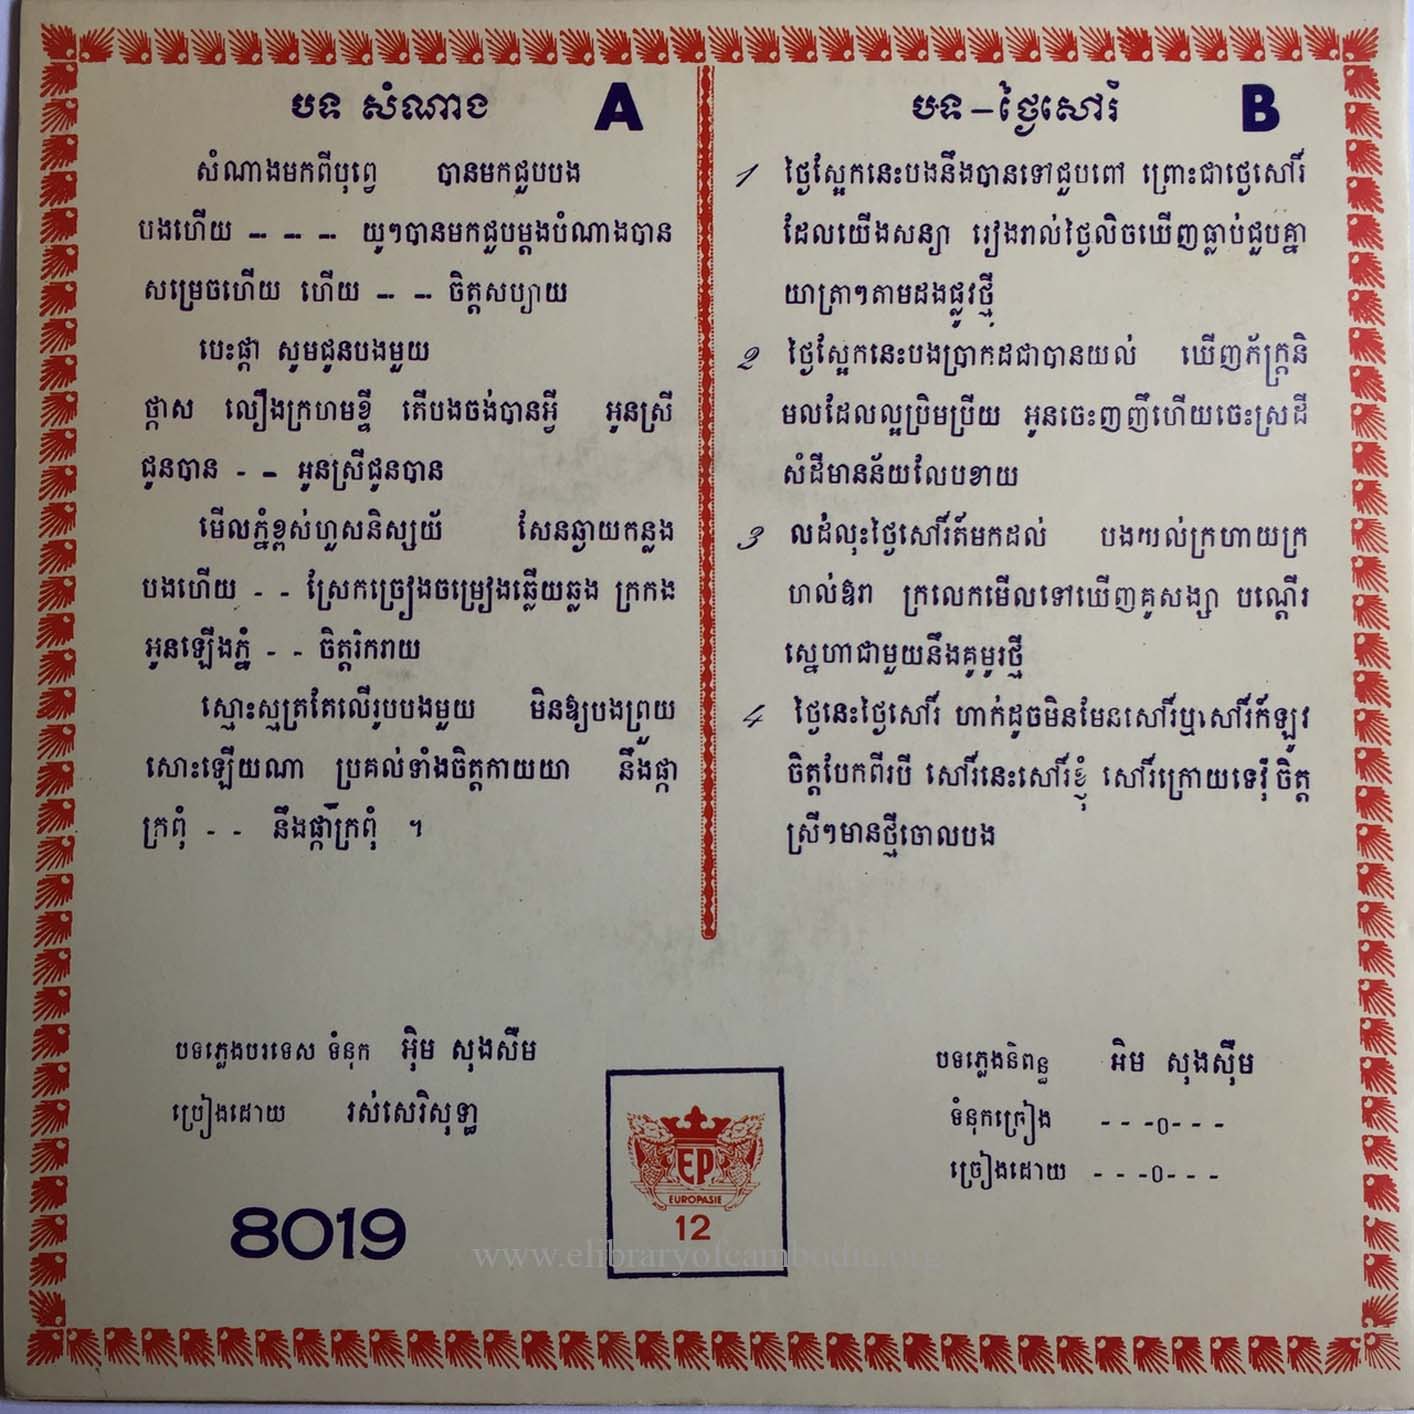 បទ សំណាង A
សំណាងមកពីបុព្វេ បានមកជួបបង
បងហើយ --- --- --- យូៗបានមកជួបម្ដងបំណាងបាន
សម្រេចហើយ ហើយ --- --- ចិត្តសប្បាយ
បេះផ្កា សូមជូនបងមួយ
ថ្កាស លឿងក្រហមខ្ចី តើបងចង់បានអ្វី អូនស្រី
ជូនបាន - - អូនស្រីជូនបាន
មើលភ្នំខ្ពស់ហួសនិស្សយ័ សែនឆ្ងាយកន្លង
បងហើយ - - ស្រែកច្រៀងចម្រៀងឆ្លើយឆ្លង ក្រកង
អូនឡើងភ្នំ - - ចិត្តរិករាយ
ស្មោះស្មត្រតែលើរូបបងមួយ មិនឱ្យបងព្រួយ
សោះឡើយណា ប្រគល់ទាំងចិត្តកាយយា នឹងផ្កា
ក្រពុំ - - នឹងផ្កាក្រពុំ ។
បទភ្លេងបរទេស ទំនុក អ៊ិម សុងសឺម
ច្រៀងដោយ រស់សេរិសុទ្ធា
8019
បទ - ថ្ងៃសៅរ៍ B
1 ថ្ងៃស្អែកនេះបងនឹងបានទៅជួបពៅ ព្រោះជាថ្ងេសៅរ៍
ដែលយើងសន្យា រៀងរាល់ថ្ងៃលិចឃើញធ្លាប់ជួបគ្នា
យាត្រាៗតាមដងផ្លូវថ្មី
2 ថ្ងៃស្អែកនេះបងប្រាកដជាបានយល់ ឃើញភ័ក្ត្រនិ
មលដែលល្អប្រិមប្រិយ អូនចេះញញឹហើយចេះស្រដី
សំដីមានន័យលែបខាយ
3 លដំលុះថ្ងៃសៅរ៍ត័មកដល់ បងយល់ក្រហាយក្រ
ហល់ឱរា ក្រលេកមើលទៅឃើញគូសង្សា បណ្ដើរ
ស្នេហាជាមួយនឹងគូមូរថ្មី
4 ថ្ងៃនេះថ្ងៃសៅរ៍ ហាក់ដូចមិនមែនសៅរ៍ឬសៅរ៍ក័ឡូវ
ចិត្តបែកពីរបី សៅរ៍នេះសៅរ៍ខ្ញុំ សៅរ៍ក្រោយទេវុី ចិត្ត
ស្រីៗមានថ្មីចោលបង
បទភ្លេងនិពន្ធ អិម សុងស៊ឹម
ទំនុកច្រៀង - - -o- - -
ច្រៀងដោយ - - -o- - -
EP
EUROPASIE
12
www.elibraryofcambodia.org